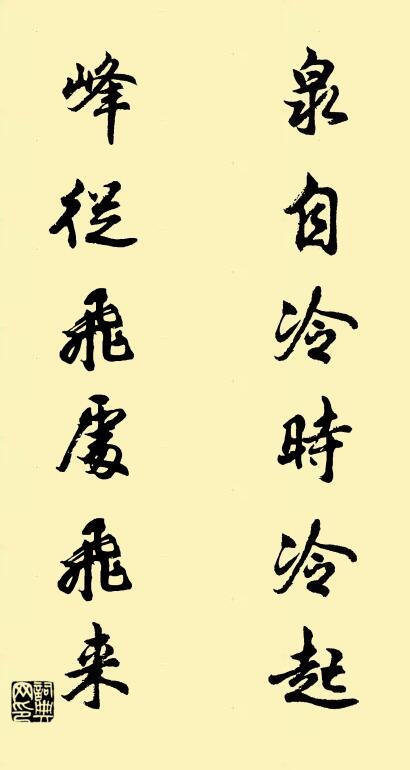 泉自冷時冷起
峰從飛處飛来
詞典网印